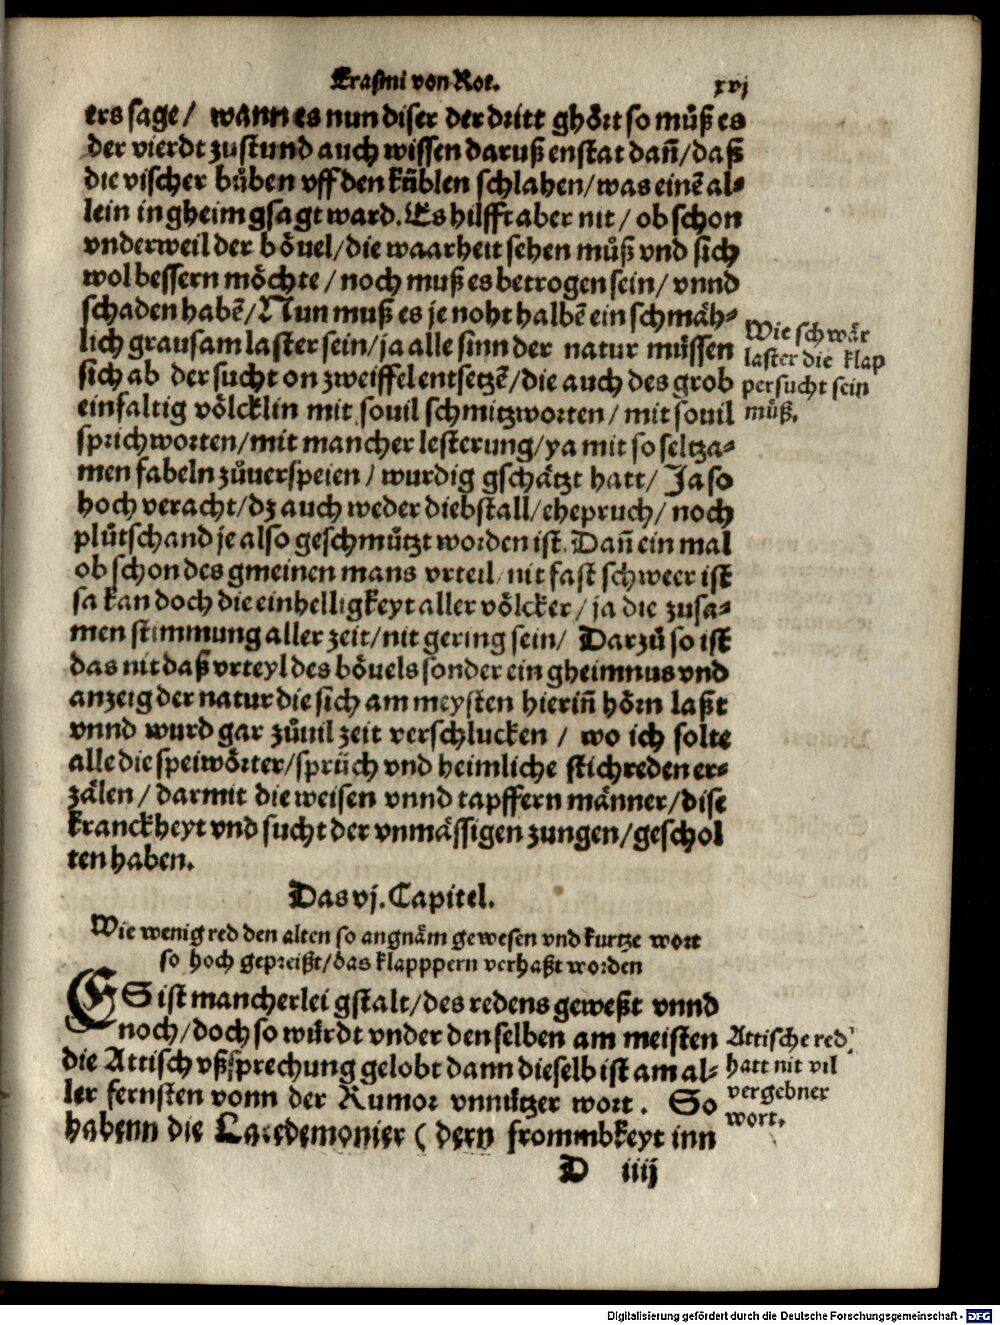 Erasmi von Rot.
xvj
ers sage/ wann es nun diser der dritt ghört so můß es
der vierdt zustund auch wissen daruß enstat dañ/daß
die vischer bůben vff den kůblen schlahen/was einē al-
lein in gheim gsagt ward. Es hilfft aber nit/ ob schon
vnderweil der bövel/die waarheit sehen můß vnd sich
wol bessern möchte/noch muß es betrogen sein/ vnnd
schaden habē/Nun muß es je noht halbē ein schmäh-
lich grausam laster sein/ja alle sinn der natur můssen
sich ab der sucht on zweiffel entsetzē/die auch des grob
einfaltig völcklin mit souil schmitzworten/ mit souil
sprichworten/mit mancher lesterung/ya mit so seltza-
men fabeln zůuerspeien/ wurdig gschätzt hatt/ Ja so
hoch veracht/dz auch weder diebstall/ehepruch/ noch
plůtschand je also geschmützt worden ist. Dañ ein mal
ob schon des gmeinen mans vrteil nit fast schweer ist
sa kan doch die einhelligkeyt aller völcker/ja die zusa-
men stimmung aller zeit/nit gering sein/ Darzů so ist
das nit daß vrteyl des bövels sonder ein gheimnus vnd
anzeig der natur die sich am meysten hieriñ hörn laßt
vnnd wurd gar zůuil zeit verschlucken/ wo ich solte
alle die speiwörter/sprüch vnd heimliche stichreden er-
zälen/ darmit die weisen vnnd tapffern männer/dise
kranckheyt vnd sucht der vnmässigen zungen/geschol
ten haben.
Wie schwär
laster die klap
persucht sein
můß.
Das vj. Capitel.
Wie wenig red den alten so angnäm gewesen vnd kurtze wort
so hoch gepreißt/das klapppern verhaßt worden
ES ist mancherlei gstalt/des redens geweßt vnnd
noch/doch so würdt vnder denselben am meisten
die Attisch vßsprechung gelobt dann dieselb ist am al-
ler fernsten vonn der Rumor vnnützer wort. So
habenn die Lacedemonier ( dern frommbkeyt inn
Attische red
hatt nit vil
vergebner
wort.
D iiij
Digitalisierung gefördert durch die Deutsche Forschungsgemeinschaft - DFG